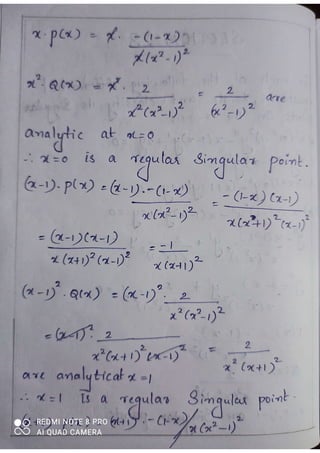 x·p(x) = x̸. -(1-x) / x̸(x²-1)²
x²·Q(x) = x². 2 / x²(x²-1)² = 2 / (x²-1)² are
analytic at x=0
∴ x=0 is a regular Singular point.
(x-1)·p(x) = (x-1).-(1-x) / x(x²-1)² = -(1-x)(x-1) / x(x+1)²(x-1)²
= (x-1)(x-1) / x(x+1)²(x-1)² = -1 / x(x+1)²
(x-1)²·Q(x) = (x-1)². 2 / x²(x²-1)²
= (x-1)². 2 / x²(x+1)²(x-1)² = 2 / x²(x+1)²
are analytic at x=1
∴ x=1 Is a regular Singular point.
(x+1).-(1-x) / x(x²-1)²
REDMI NOTE 8 PRO
AI QUAD CAMERA